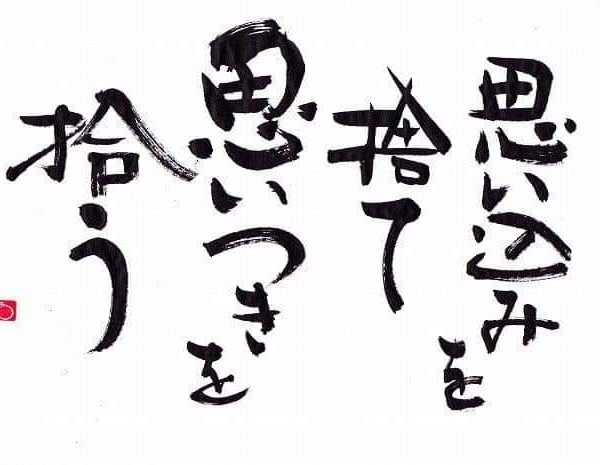 思い込みを
捨て
思いつきを
拾う